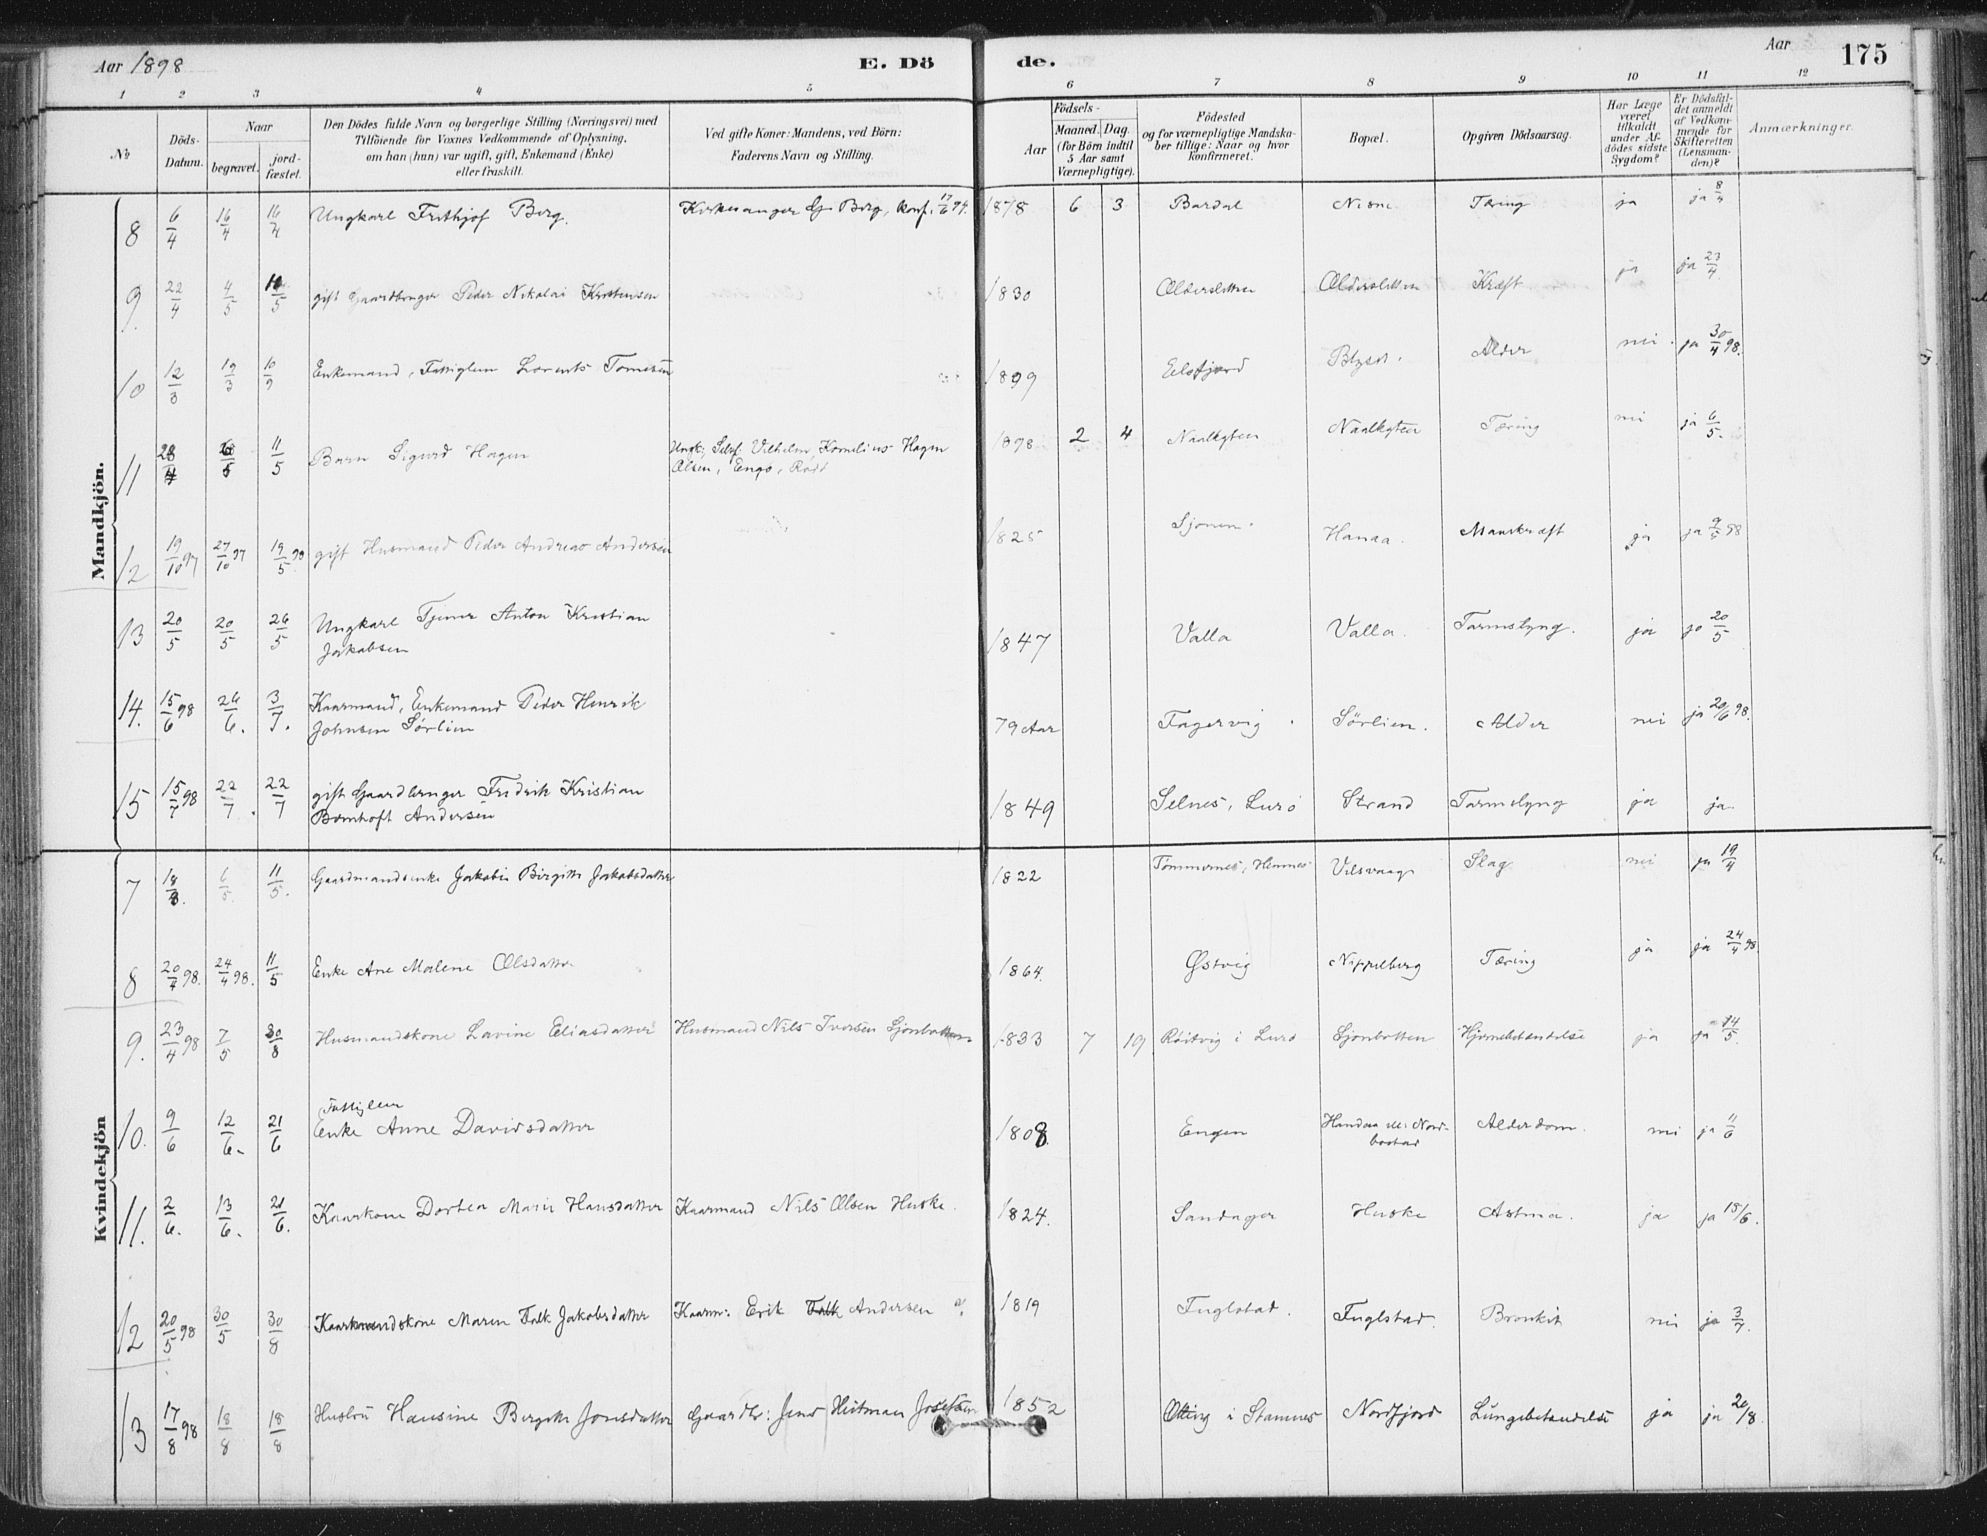 Aar 1898
E. Dö
de.
Aar
175
1 2 3 4 5 6 7 8 9 10 11 12
№
Döds-Datum.
Naar
begravet.
jord-fæstet.
Den Dödes fulde Navn og borgerlige Stilling (Næringsvei) med
Tilföiende for Voxnes Vedkommende af Oplysning,
om han (hun) var ugift, gift, Enkemand (Enke)
eller fraskilt.
Ved gifte Koner: Mandens, ved Börn:
Faderens Navn og Stilling.
Födsels-
Aar
Maaned. Dag.
(for Börn indtil
5 Aar samt
Værnepligtige).
Födested
og for værnepligtige Mandska-
ber tillige: Naar og hvor
konfirmeret.
Bopæl.
Opgiven Dödsaarsag.
Har Læge
været
tilkaldt
under Af-
dödes sidste
Sygdom?
Er Dödsfal-
det anmeldt
af Vedkom-
mende for
Skifteretten
(Lensman-
den)?
Anmærkninger.
Mandkjön.
8 6/4 16/4 16/4 Ungkarl Frithjof Berg. Kirkesanger Berg, konf. 17/6 94. 1878 6 3 Bardal Nesne Tæring ja ja 8/4
9. 22/4 4/5 gift Gaardbruger Peder Nikolai Kristensen 1830 Olderskletten Kræft ja ja 23/4.
10 12/3 19/3 Enkemand, Fattiglem Lorents 1899 Elsfjord Alder nei ja 30/4 98.
11 28/4 11/5 Barn Sigurd Hagen Ungk., Vilhelm Kornelius Hagen
Olsen, Engø, Rødø 1898 2 4 Naalkyten Naalkyten Tæring nei ja 6/5.
12 19/10 97 27/10 97 19/5 gift Husmand Peder Andreas Andersen 1825 Sjonen. Hanaa. Mavekræft ja ja 9/5 98
13 20/5 20/5 26/5 Ungkarl Tjener Anton Kristian
Jakobsen 1847 Valla Valla. Tarmslyng. ja ja 20/5
14. 15/6 98 26/6. 3/7. Kaarmand, Enkemand Peder Henrik
Johnsen Sørlien 79 Aar Fagervig Sørlien. Alder nei ja 20/6 98.
15 15/7 98 22/7. 22/7 gift Gaardbruger Fredrik Kristian
Bornhoft Andersen 1849 Selnes, Lurø Strand Tarmslyng ja ja
Kvindekjön
7 6/5. 11/5. Gaardmandsenke Jakobie Birgitte Jakobsdatter 1822 Tømmernes, Hemnes Vilsvaag Slag nei ja 19/4
8 20/4 98. 24/4 98. 11/5 Enke Ane Malene Olsdatter 1864. Østvig Nippelberg Tæring ja ja 24/4 98.
9. 23/4 98 7/5 30/8 Husmandskone Lavine Eliasdatter Husmand Nils Iversen Sjonbotten 1833 7 19 Røitvig i Lurø Sjonbotten Hjernebetændelse ja ja 14/5.
10. 9/6 12/6. 21/6 Fattiglem
Enke Anne Davidsdatter 1808. Engen Handaa ell. Nord-
bostad Alderdom. nei ja 11/6
11. 2/6. 13/6. 21/6. Kaarkone Dortea Marie Hansdatter Kaarmand Nils Olsen Huske. 1824. Sandager Huske Astma. ja ja 15/6.
12 20/5 98 30/5 30/8 Kaarmandskone Maren Falk Jakobsdatter Kaarm: Erik Falk Andersen 1819 Fuglstad. Fuglstad. Bronkit nei ja 3/7.
13 17/8 98 18/8 18/8 Hustru Hansine Bergitte Jonsdatter Gaardbr: Jens Hvitman Josefsen 1852 i Stamnes Nordfjord Lungebetændelse ja ja 20/8.